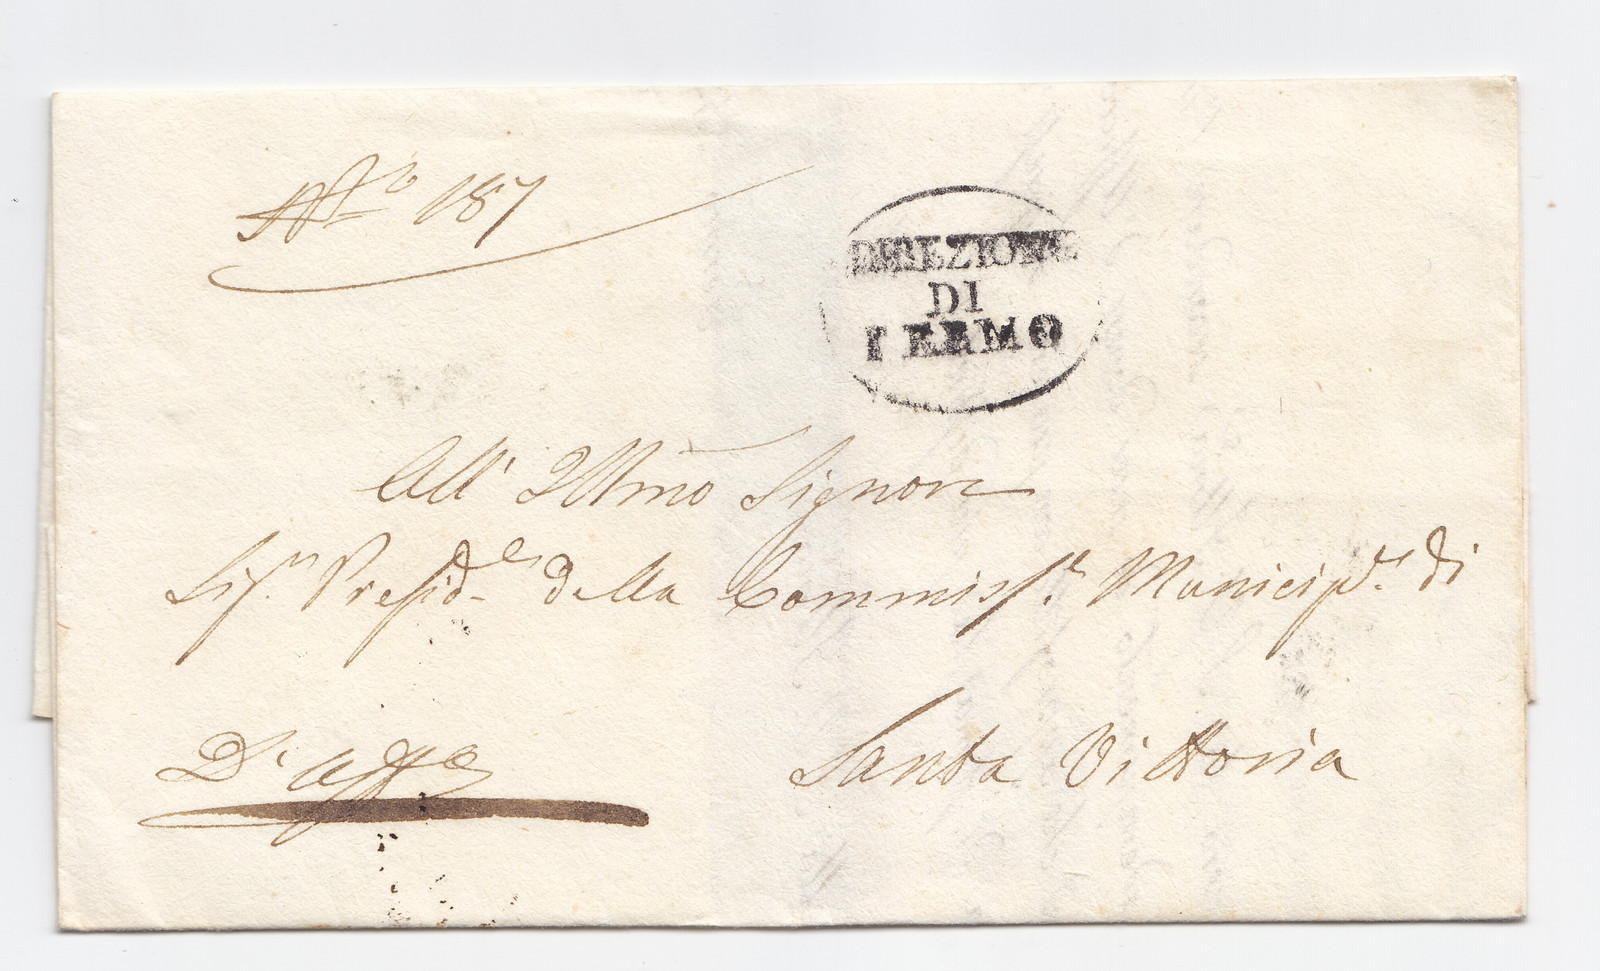 N.o 187
DIREZIONE
DI
FERMO
All' Illmo Signore
Sig.r Presid.e della Commiss.e Municip.e di
Santa Vittoria
D'uff.o